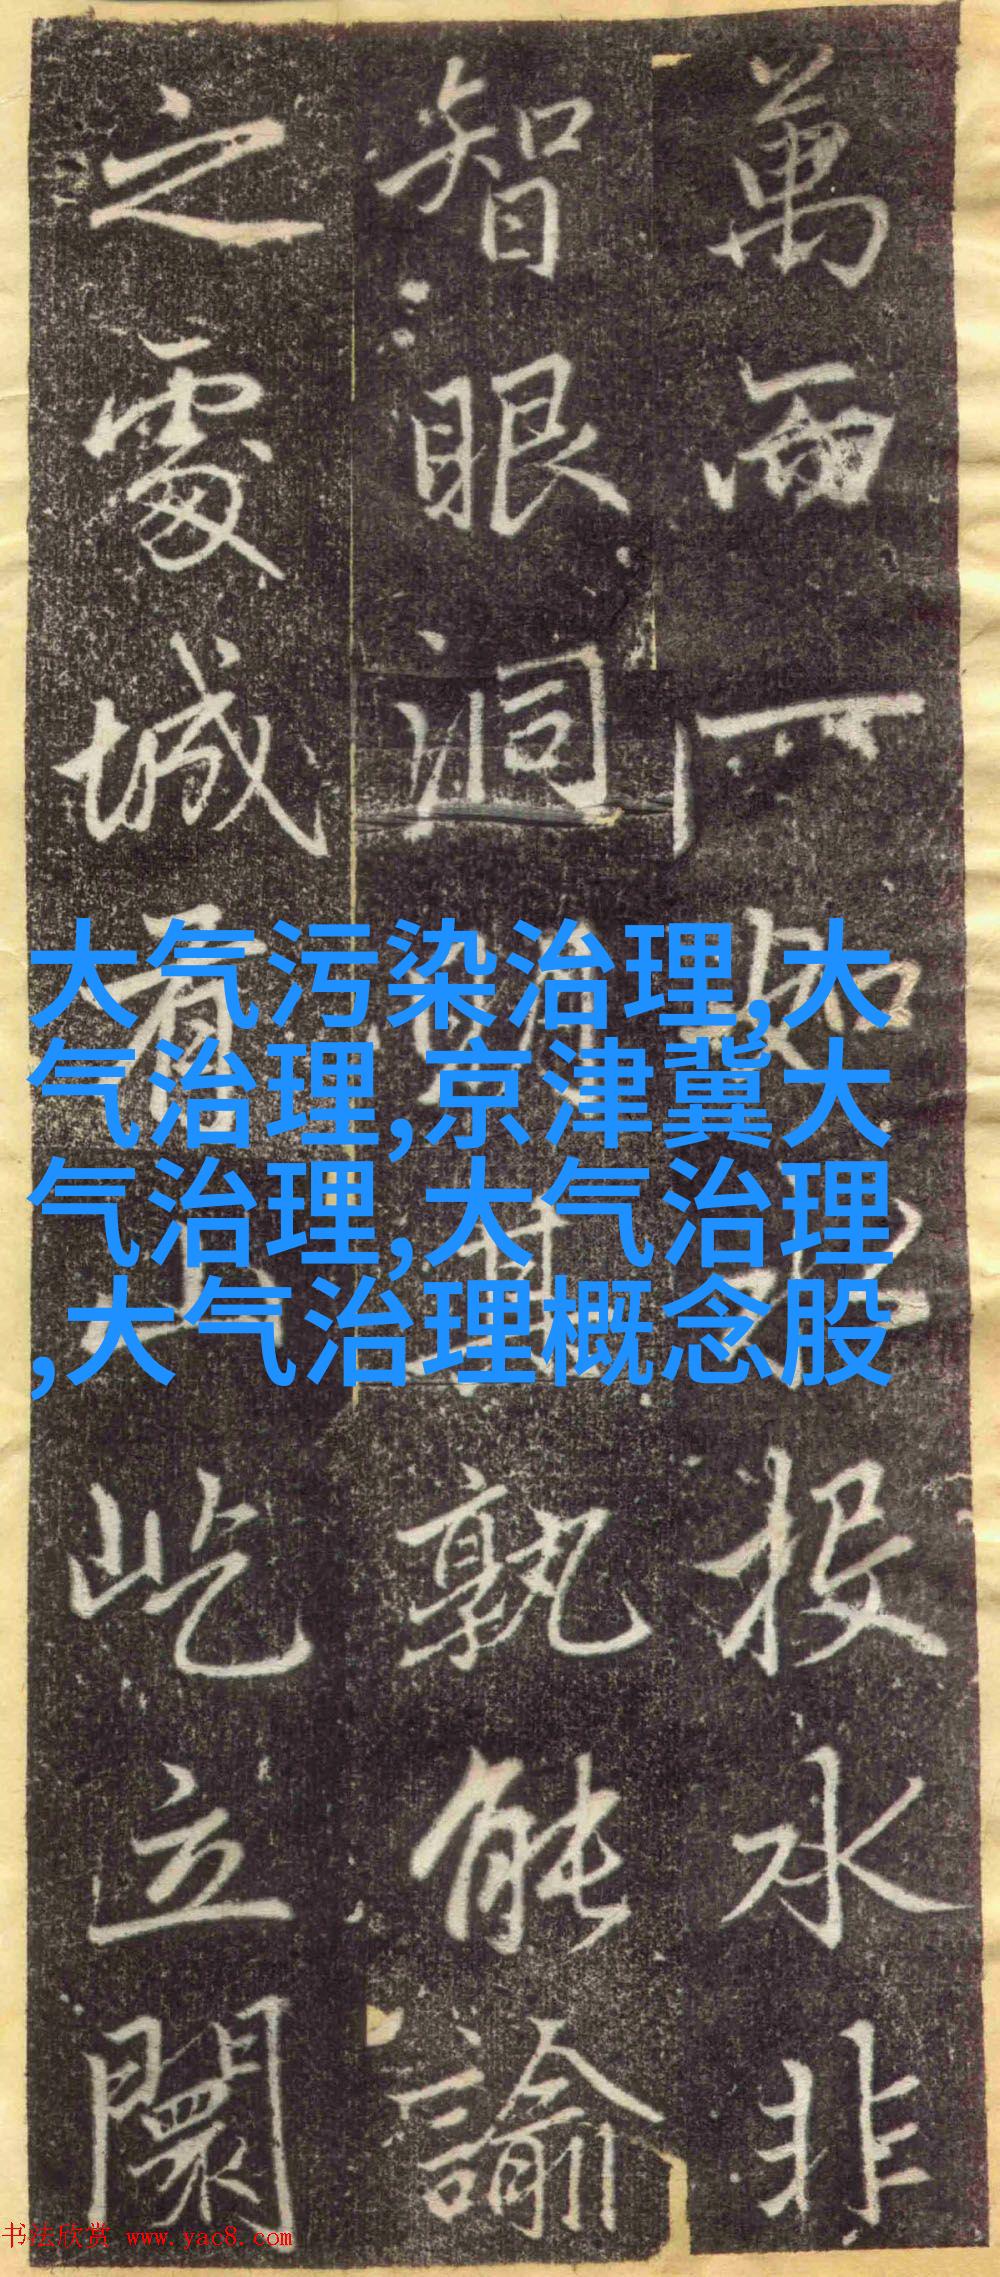 萬而一如投水非
智眼洞其孰能諭
之處城屹立闤
大气污染治理,大
气治理,京津冀大
气治理,大气治理
,大气治理概念股
书法欣赏 www.yac8.com